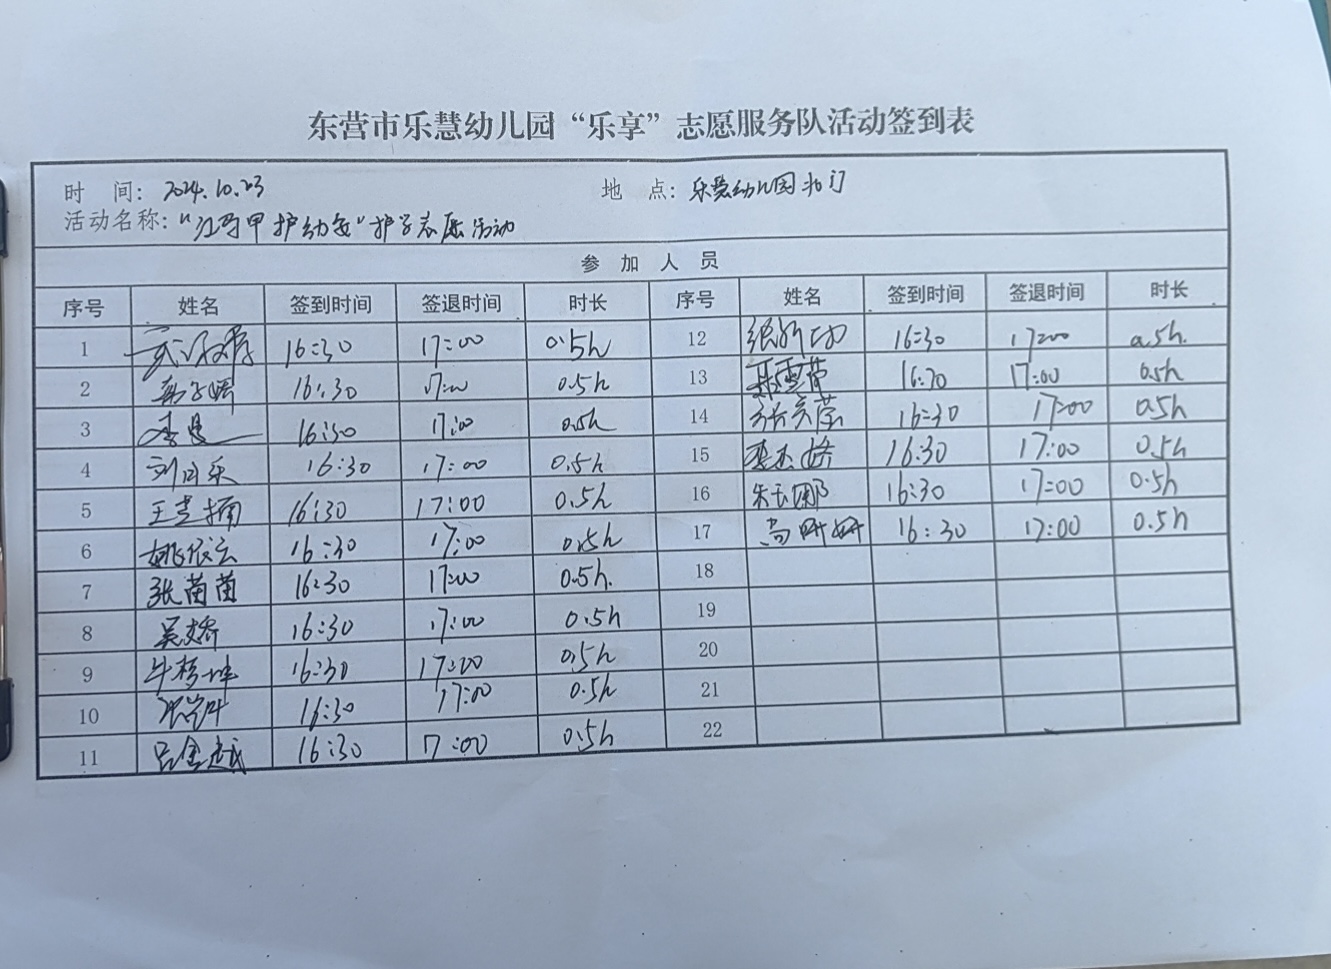 东营市乐慧幼儿园“乐享”志愿服务队活动签到表
时 间: 2024.10.23 地 点: 乐慧幼儿园北门
活动名称: “红马甲护幼安”护学志愿活动
参 加 人 员
序号 姓名 签到时间 签退时间 时长 序号 姓名 签到时间 签退时间 时长
1 16:30 17:00 0.5h 12 16:30 17:00 0.5h.
2 16:30 17:00 0.5h 13 16:30 17:00 0.5h
3 16:30 17:00 0.5h 14 16:30 17:00 0.5h
4 刘 乐 16:30 17:00 0.5h 15 李 娇 16:30 17:00 0.5h
5 王 16:30 17:00 0.5h 16 朱玉娜 16:30 17:00 0.5h
6 姚依云 16:30 17:00 0.5h 17 高姗姗 16:30 17:00 0.5h
7 张苗苗 16:30 17:00 0.5h. 18
8 吴娇 16:30 17:00 0.5h 19
9 牛梦坤 16:30 17:00 0.5h 20
10 16:30 17:00 0.5h 21
11 吕金越 16:30 17:00 0.5h 22